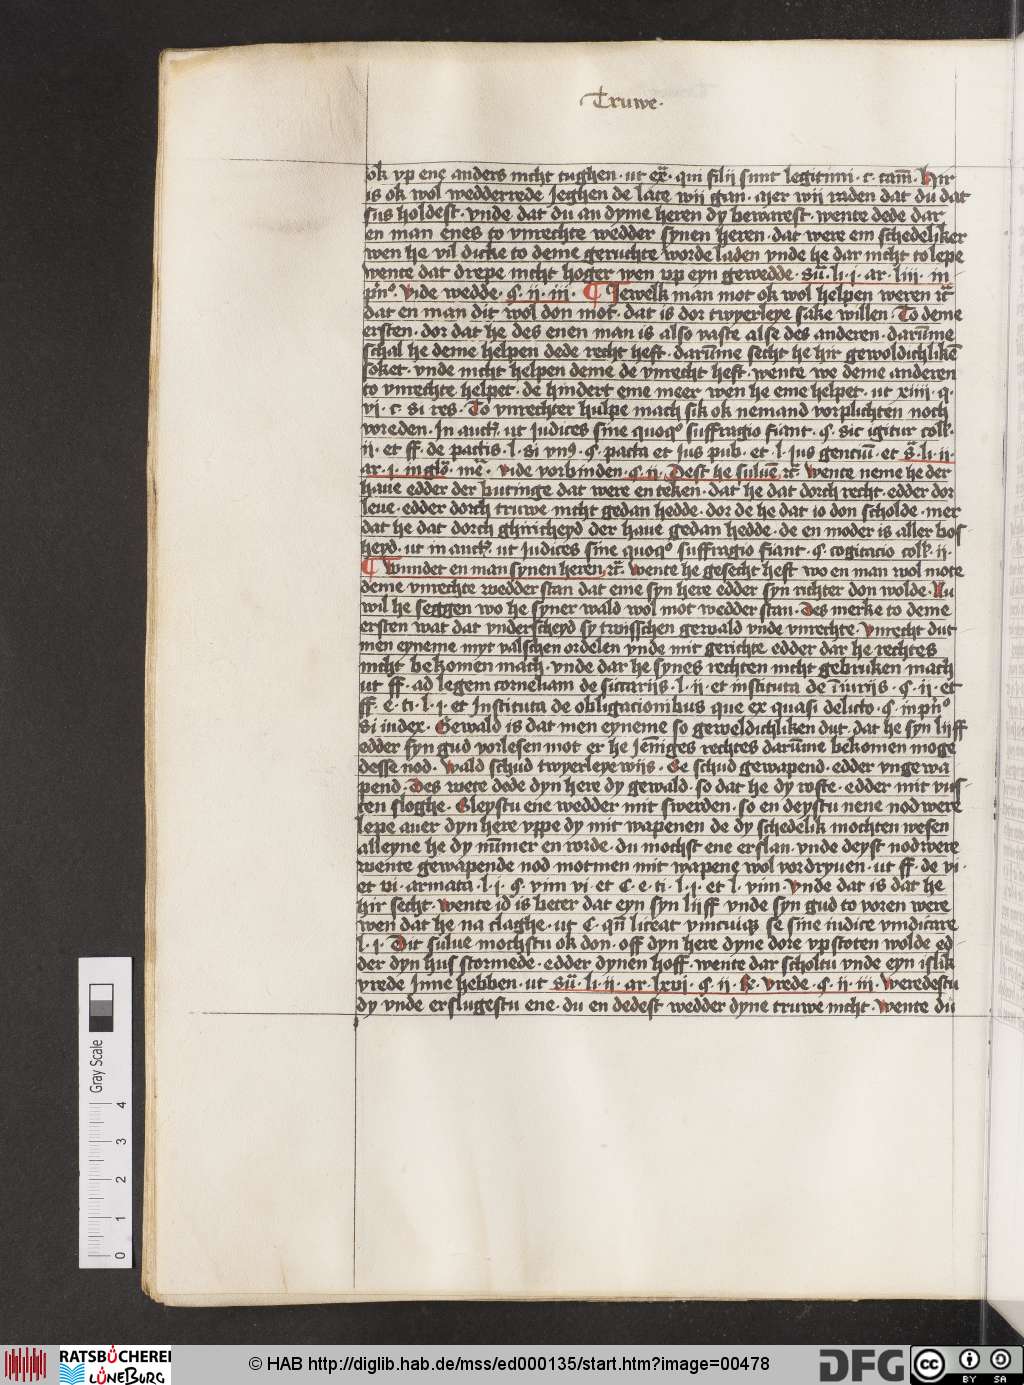 Truwe·
ok vp ene anders nicht tughen· ut ex̃· qui filij sunt legitimi· c· tam̃· Hir
is ok wol wedderrede Jeghen de late wij gan· aver wij raden dat du dat
sus holdest· vnde dat du an dyme heren dy bewarest· wente dede dar
en man enes to vnrechte wedder synen heren· dat were em schedeliker
wen he vil dicke to deme geruchte worde laden vnde he dar nicht to lepe
wente dat drepe nicht hoger wen vp eyn gewedde· sũ· li· j· ar· liii· in
pⁱnº· Vide wedde· ꝯ· ii· iii· ¶ Jewelk man mot ok wol helpen weren ꝛc̃
dat en man dit wol don mot· dat is dor twyerleye sake willen· To deme
ersten· dor dat he des enen man is also vaste alse des anderen· darūme
schal he deme helpen dede recht heft· darūme secht he hir gewoldichlikē
soket· vnde nicht helpen deme de vnrecht heft· wente we deme anderen
to vnrechte helpet· de hindert eme meer wen he eme helpet· ut xiiii· q·
vi· c· si res· To vnrechter hulpe mach sik ok nemand vorplichten noch
voreden· In auct̃· ut iudices sine quoqº suffragio fiant· ꝯ· sic igitur coll̃·
ii· et ff· de pactis· l· si vnꝰ· ꝯ· pacta et Jus pub· et· l· Jus genciū· et s̃· li· ii·
ar· j· in glo· me· Vide vorbinden· ꝯ· ii· Dest he suluē ꝛc̃· Wente neme he der
haue edder der butinge dat were en teken· dat he dat dorch recht· edder dor
leue· edder dorch truwe nicht gedan hedde· dor de he dat io don scholde· mer
dat he dat dorch ghiricheyd der haue gedan hedde· de en moder is aller bos
heyd· ut in auct̃· ut Judices sine quoqº suffragio fiant· ꝯ· cogitacio coll̃· ii·
¶ Wundet en man synen heren ꝛc̃· Wente he gesecht heft wo en man wol mote
deme vnrechte wedder stan dat eme syn here edder syn richter don wolde· Nu
wil he seggen wo he syner wald wol mot wedder stan· Des merke to deme
ersten wat dat vnderscheyd sy twisschen gewald vnde vnrechte· Vnrecht dut
men eyneme myt valschen ordelen vnde mit gerichte edder dar he rechtes
nicht bekomen mach· vnde dar he synes rechten nicht gebruken mach
ut ff· ad legem corneliam de siccariis· l· ii· et instituta de iniuriis· ꝯ· ii· et
ff· e· ti· l· j· et Instituta de obligacionibus que ex quasi delicto· ꝯ· in pⁱnº
si iudex· Gewald is dat men eyneme so geweldichliken dut· dat he syn lijff
edder syn gud vorlesen mot er he Jēniges rechtes darūme bekomen moge
desse nod· Wald schud twyerleye wijs· Se schud gewapend· edder vngewa
pend· Des wete dede dyn here dy gewald· so dat he dy roste· edder mit vus
ten sloghe· Sleystu ene wedder mit swerden· so en deystu nene nod were
lepe auer dyn here vppe dy mit wapenen de dy schedelik mochten wesen
alleyne he dy nūmer en worde· du mochst ene erslan· vnde deyst nod were
wente gewapende nod mot men mit wapene wol vordryuen· ut ff· de vi·
et vi· armata· l· j· ꝯ· vim vi· et C· e· ti· l· j· et l· vim· Vnde dat is dat he
hir secht· Wente id is beter dat eyn syn lijff vnde syn gud to voren were
wen dat he na claghe· ut C· qñ liceat vnicuiqꝫ se sine iudice vindicare
l· j· Dit sulue mochstu ok don· off dyn here dyne dore vpstoten wolde ed
der dyn hus stormede· edder dynen hoff· wente dar scholtu vnde eyn islik
vrede Jnne hebben· ut sũ· li· ii· ar· lxvi· ꝯ· ii· R̃· Vrede· ꝯ· ii· iii· Weredestu
dy vnde erslugestu ene· du en dedest wedder dyne truwe nicht· Wente dū
Gray Scale
0 1 2 3 4
RATSBÜCHEREI
LÜNEBURG
© HAB http://diglib.hab.de/mss/ed000135/start.htm?image=00478
DFG
cc BY SA